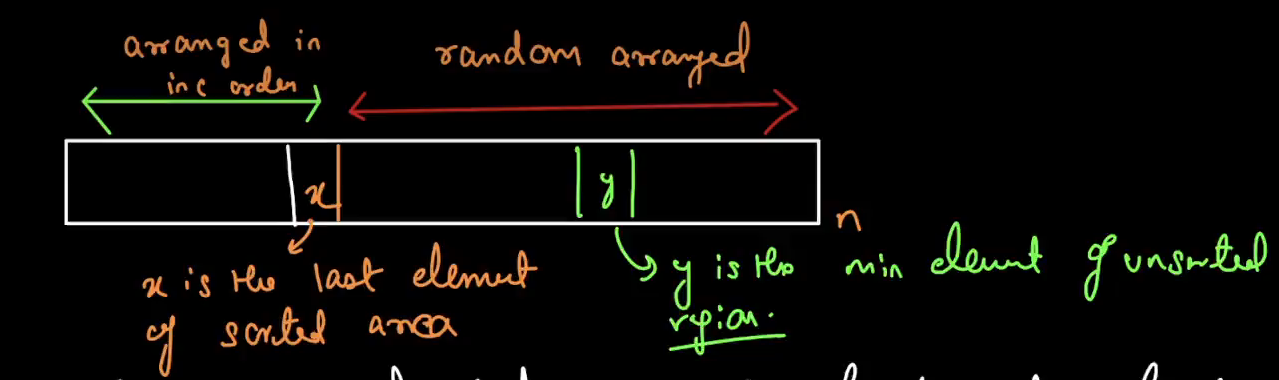 arranged in
inc order
random arranged
x
y
n
x is the last element
of sorted area
y is the min element of unsorted
region.